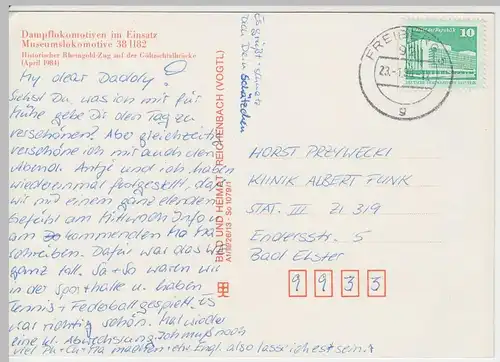 Dampflokomotiven im Einsatz
Museumslokomotive 38 1182
Historischer Rheingold-Zug auf der Göltzschtalbrücke
(April 1984)
My dear Daddy!
Siehst Du, was ich mir für
Mühe gebe Dir den Tag zu
verschönern. Aber gleichzeitig
verschöne ich mir auch den
Abend. Antje und ich haben
wiedereinmal festgestellt, daß
wir mit einem ganz elenden
Gefühl am Mittwoch Info u.
am kommenden Mo Ma
schreiben. Dafür war das WE
ganz toll. Sa + So waren wir
in der Sporthalle u. haben
Tennis + Federball gespielt. Es
war richtig schön. Mal wieder
eine kl. Abwechslung. Ich muß noch
viel Ph. Ch. Ma machen Engl. also lasse ich es sein.
Es grüßt
Dich Dein Schätzchen
BILD UND HEIMAT REICHENBACH (VOGTL)
A1/B/26/13 - So 1079/1
FREIBERG
9
10
HORST PRZYWECKI
KLINIK ALBERT FUNK
STAT. III ZI 319
Endersstr. 5
Bad Elster
9 9 3 3